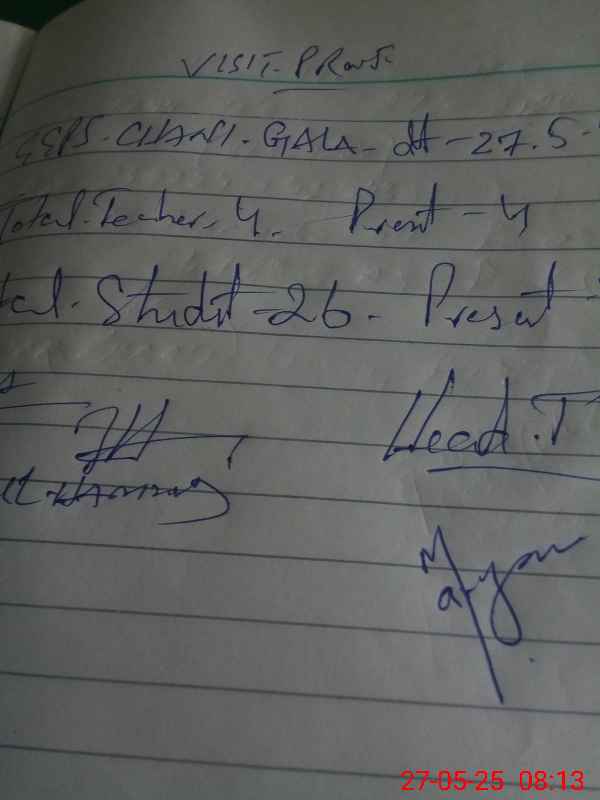 VISIT. PRoof.
GGPS. CHANI. GALA - dt - 27.5
Total. Teacher. 4. Presnt - 4
tal. Studnt - 26 - Present -
Head. T
27-05-25 08:13